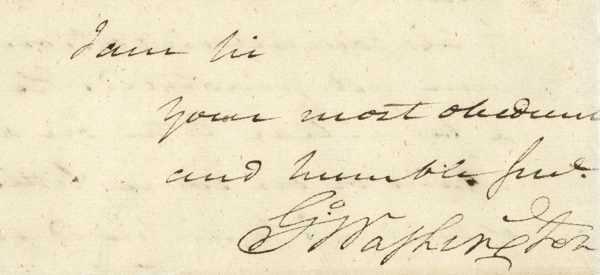 I am Sir
your most obedient
and humble Servt.
Go: Washington